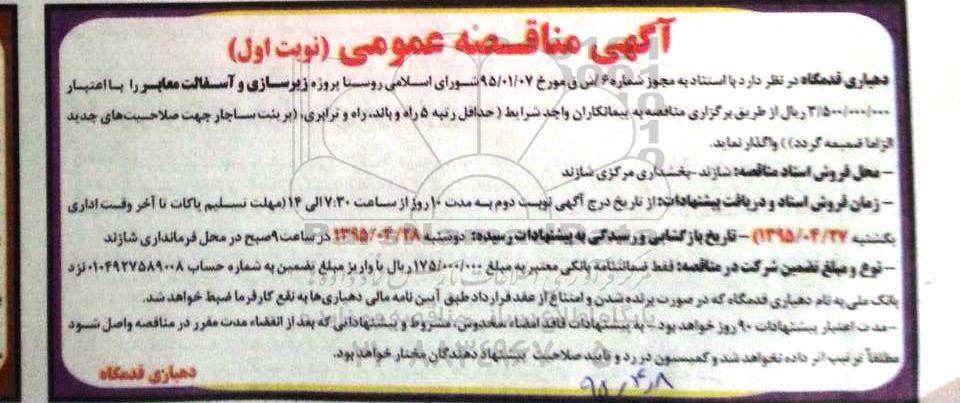 آگهی مناقصه عمومی (نوبت اول)
دهیاری قدمگاه در نظر دارد با استناد به مجوز شماره ۶ /ش ی مورخ ۹۵/۰۱/۰۷ شورای اسلامی روستا پروژه زیرسازی و آسفالت معابر را با اعتبار
۳/۵۰۰/۰۰۰/۰۰۰ ریال از طریق برگزاری مناقصه به پیمانکاران واجد شرایط (حداقل رتبه ۵ راه و باند، راه و ترابری، (پرینت ساجار جهت صلاحیت‌های جدید
الزاما ضمیمه گردد)) واگذار نماید.
– محل فروش اسناد مناقصه: شازند -بخشداری مرکزی شازند
– زمان فروش اسناد و دریافت پیشنهادات: از تاریخ درج آگهی نوبت دوم به مدت ۱۰ روز از ساعت ۷:۳۰ الی ۱۴ (مهلت تسلیم پاکات تا آخر وقت اداری
یکشنبه ۱۳۹۵/۰۴/۲۷) – تاریخ بازگشایی و رسیدگی به پیشنهادات رسیده: دوشنبه ۱۳۹۵/۰۴/۲۸ در ساعت ۹ صبح در محل فرمانداری شازند
– نوع و مبلغ تضمین شرکت در مناقصه: فقط ضمانتنامه بانکی معتبر به مبلغ ۱۷۵/۰۰۰/۰۰۰ ریال یا واریز مبلغ تضمین به شماره حساب ۰۱۰۴۹۲۷۵۸۹۰۰۸ نزد
بانک ملی به نام دهیاری قدمگاه که در صورت برنده شدن و امتناع از عقد قرارداد طبق آیین نامه مالی دهیاری‌ها به نفع کارفرما ضبط خواهد شد.
–مدت اعتبار پیشنهادات ۹۰ روز خواهد بود – به پیشنهادات فاقد امضاء مخدوش، مشروط و پیشنهاداتی که بعد از انقضاء مدت مقرر در مناقصه واصل شود
مطلقاً ترتیب اثر داده نخواهد شد و کمیسیون در رد و تایید صلاحیت پیشنهاد دهندگان مختار خواهد بود.
دهیاری قدمگاه
۹۵/۴/۸